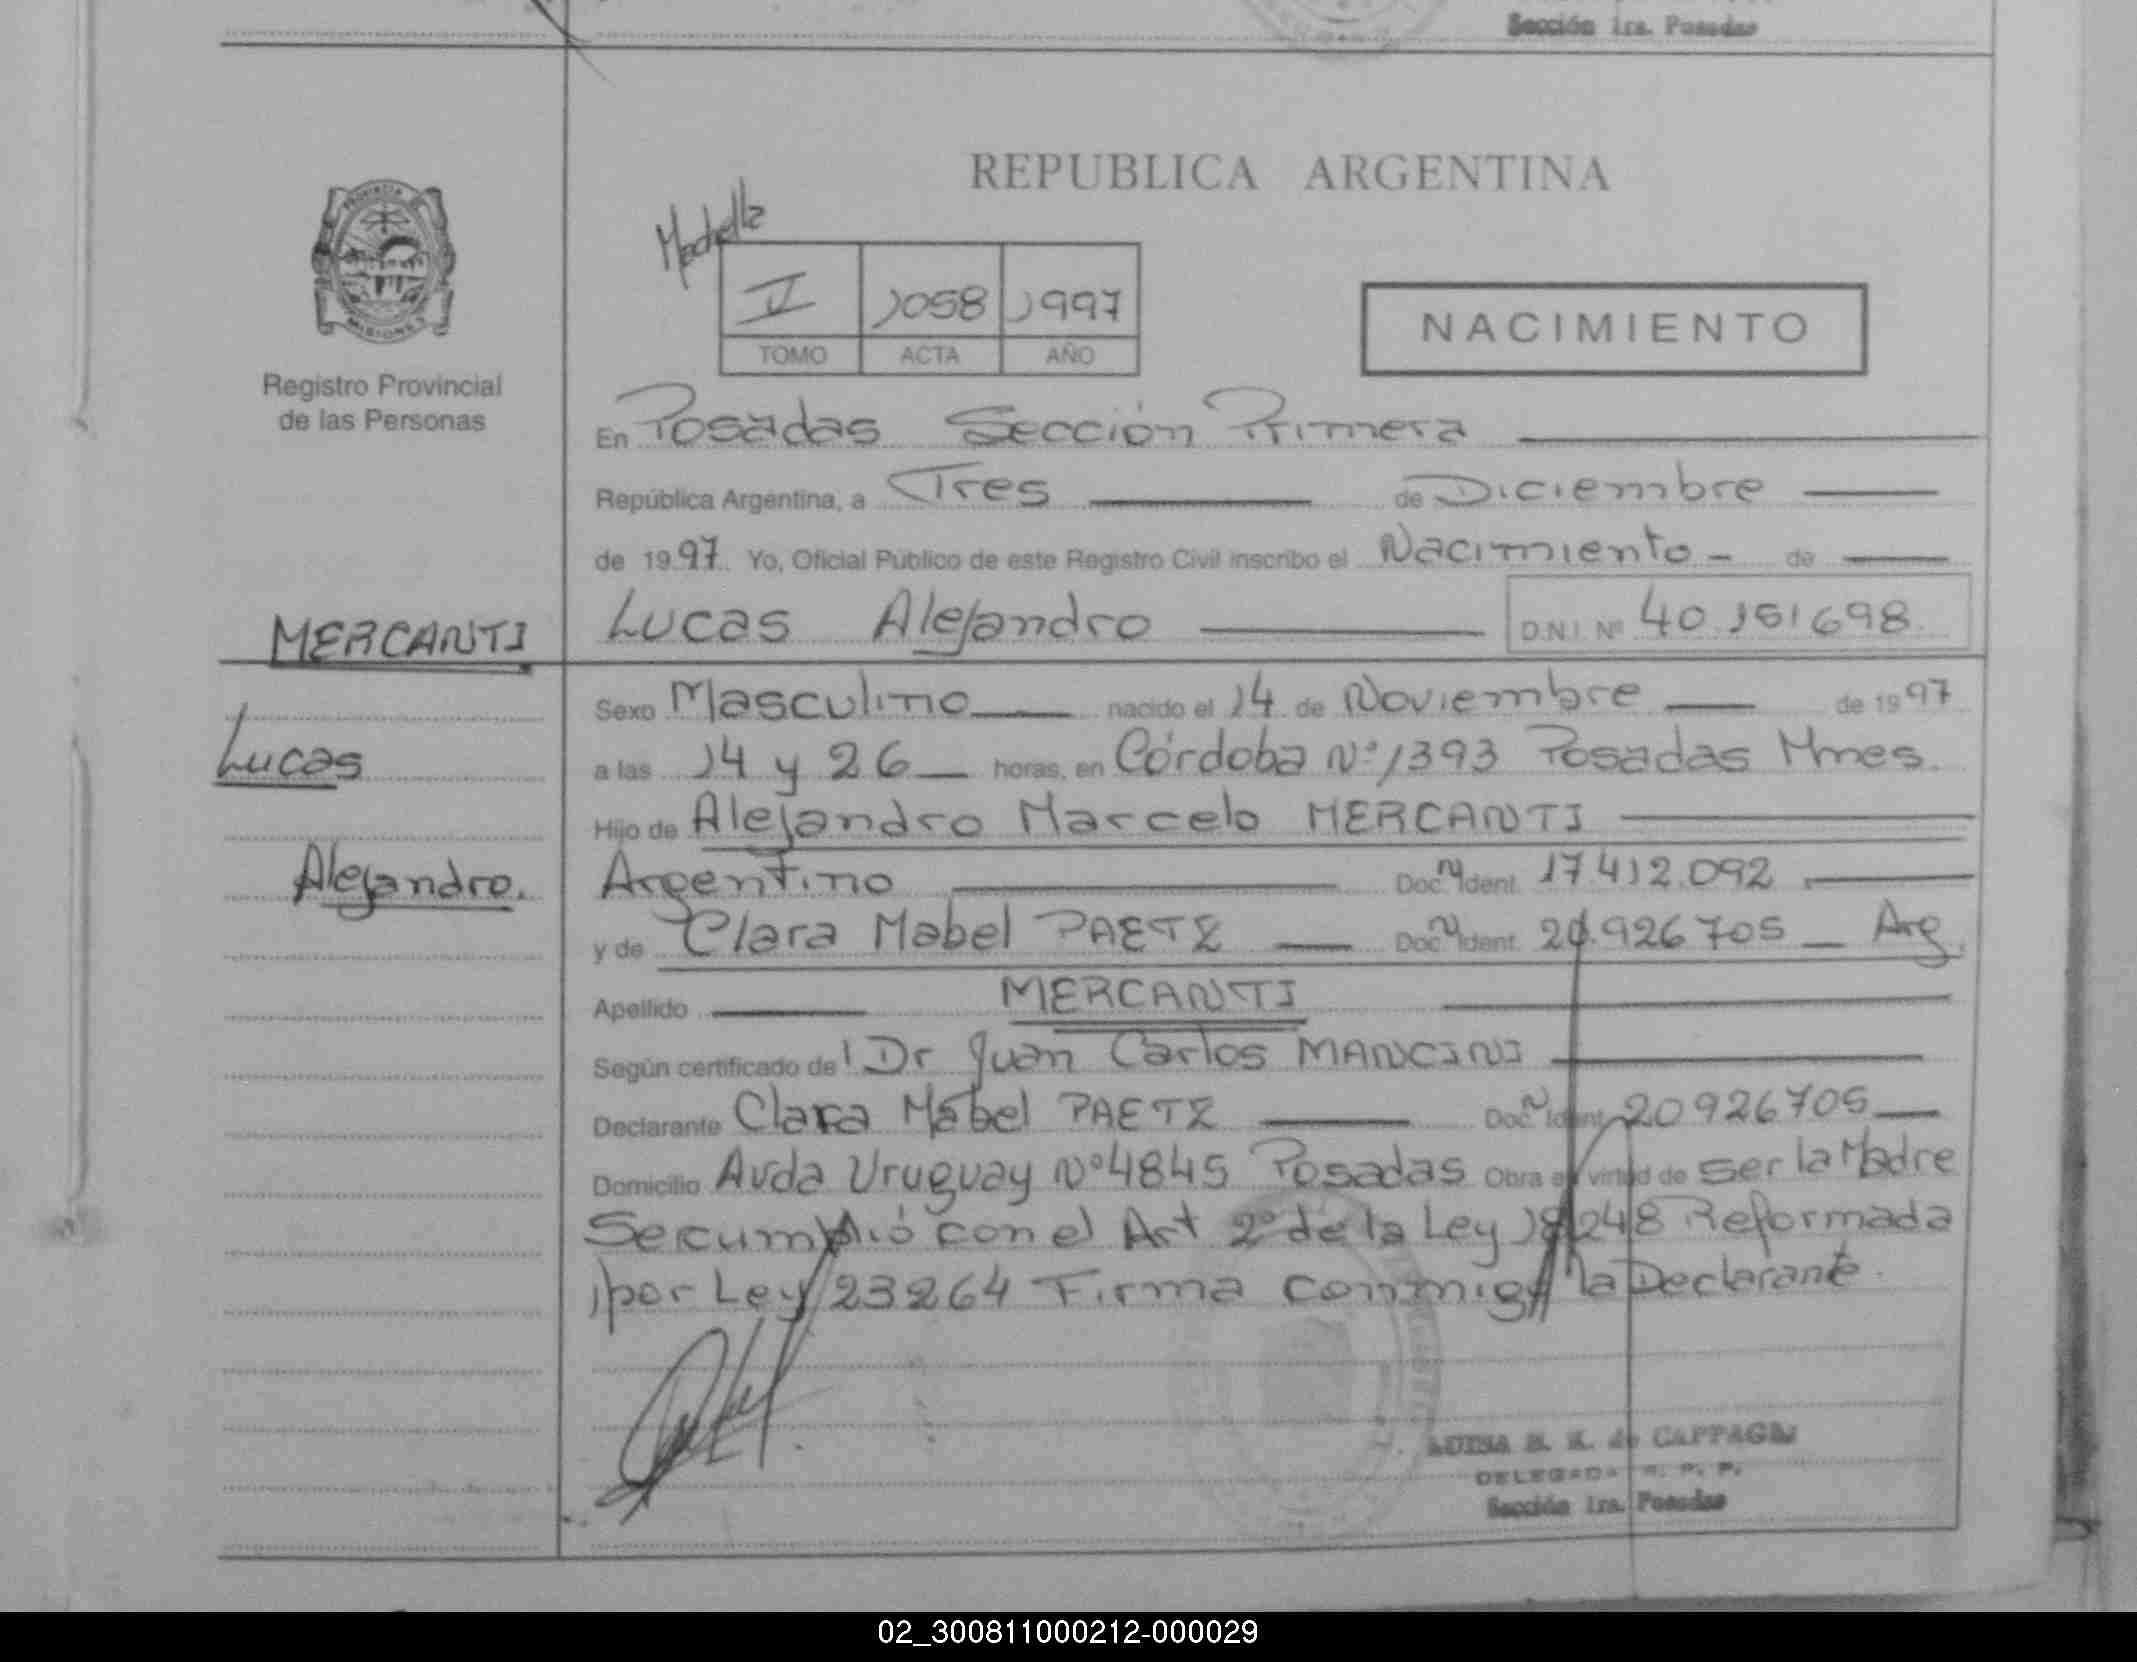 Sección 1ra. Posadas
REPUBLICA ARGENTINA
PROVINCIA
MISIONES
Registro Provincial
de las Personas
V 1058 1997
TOMO ACTA AÑO
NACIMIENTO
En Posadas Sección Primera
República Argentina, a Tres de Diciembre
de 1997 Yo, Oficial Público de este Registro Civil inscribo el Nacimiento - de
MERCANTI
Lucas Alejandro D.N.I. Nº 40.151698.
Sexo Masculino nacido el 14 de Noviembre de 1997
Lucas
a las 14 y 26 horas, en Córdoba Nº 1393 Posadas Mnes.
Hijo de Alejandro Marcelo MERCANTI
Alejandro.
Argentino Doc. Ident. 17.412.092
y de Clara Mabel PAETZ Doc. Ident. 20.926705 Arg.
Apellido MERCANTI
Según certificado del Dr Juan Carlos MANCINI
Declarante Clara Mabel PAETZ Doc. Ident. 20926705
Domicilio Avda Uruguay Nº 4845 Posadas Obra en virtud de ser la Madre
Se cumplió con el Art 2º de la Ley 18248 Reformada
por Ley 23264 Firma conmigo la Declarante.
de CAPPAGLI
DELEGADA R. P. P.
Sección 1ra. Posadas
02_300811000212-000029